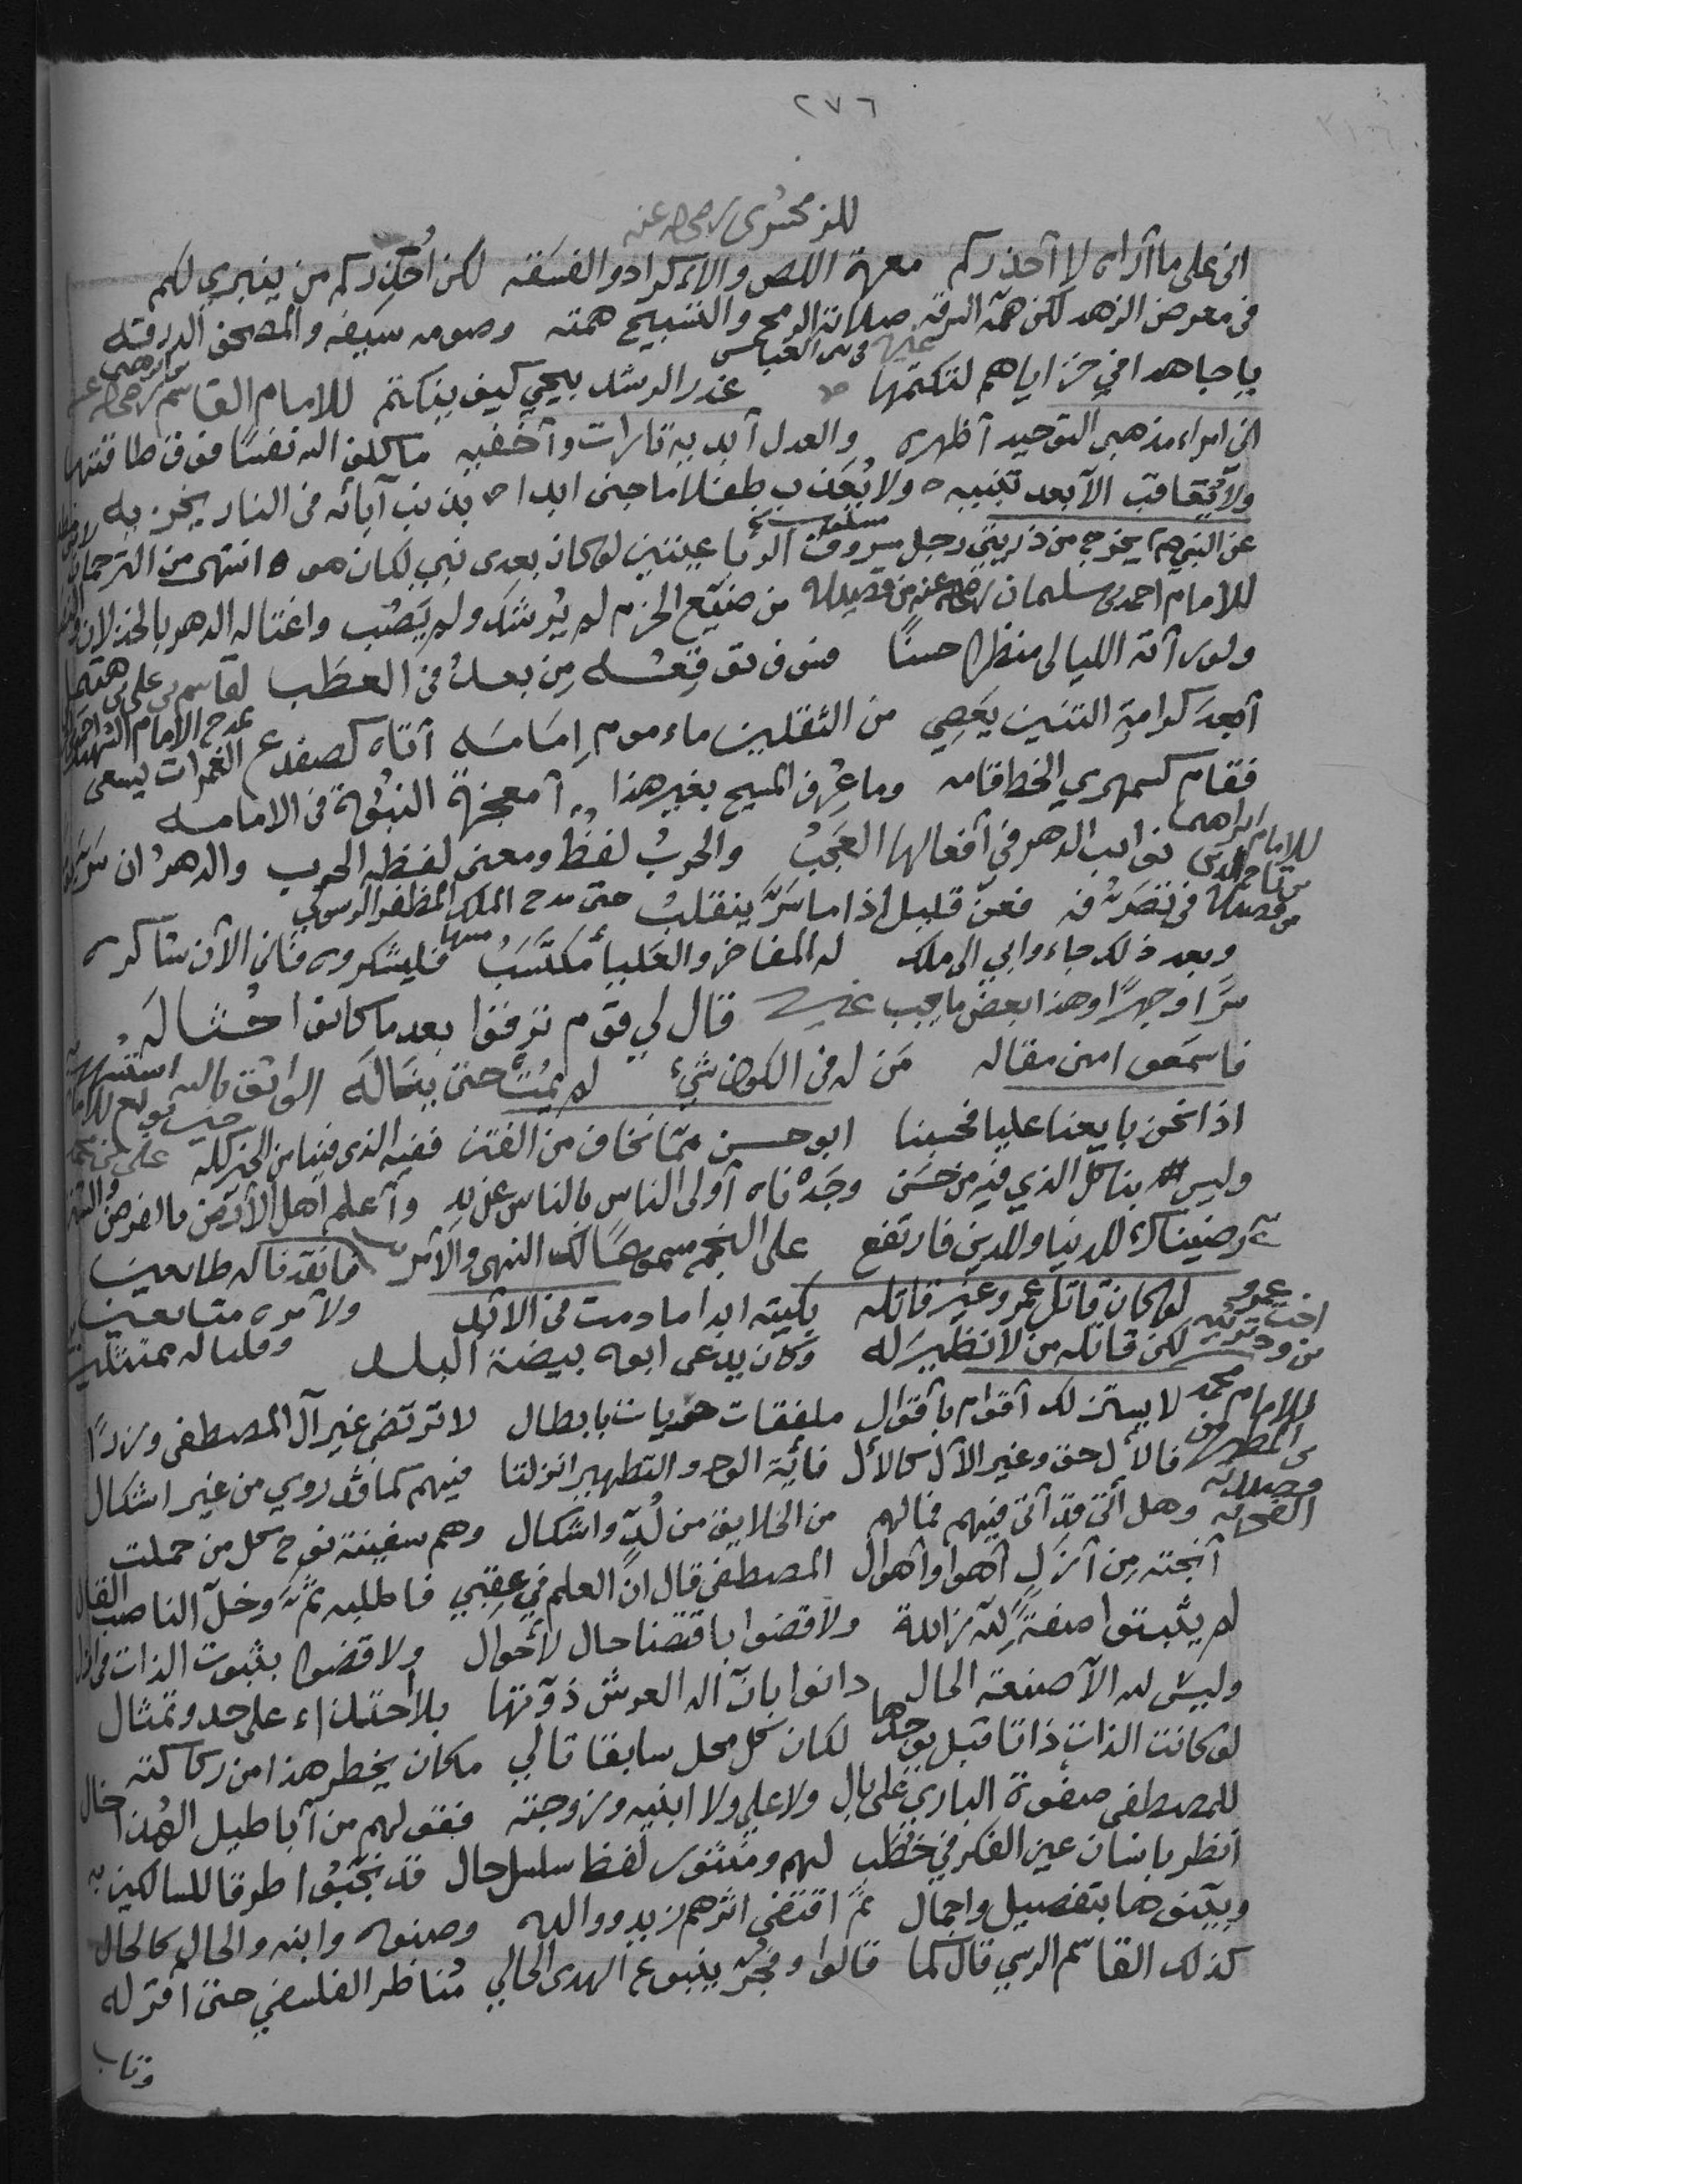 ٢٧٦
للزمخشري رحمه الله عنه
اني على ما أراه لا أحذركم معرة اللص والاكراد والفسقه لكن أحذركم من ينبري لكم
في معرض الزهد لكن همه السرقه صلاته الرمح والتسبيح همته وصومه سيفه والمصحف الدرقته
يا جاهدا في خزاياهم لتكتمها غدر الرشد بيحي كيف ينكتم للامام القاسم
اني امراء مذهبي التوحيد أظهره والعدل أبديه تارات وأخفيه ما كلف الله نفسًا فوق طاقتها
ولا يُعاقب الا بعد تنبيه ولا يُعذب طفلا ما جنى ابدا بذنب آبائه في النار يخزيه
عن النبي يخرج من ذريتي رجل مسروق الرباعيتين لو كان بعدي نبي لكان هو انتهى من الترجمان
للامام احمد بن سليمان من قصيدة من ضيّع الحزم لم يُرشد ولم يَصُب واغتاله الدهر بالخذلان
ولو رأته الليالي منظرا حسنًا فسوف توقعه مِن بعدُ في العطَب لقاسم بن علي بن هتيمل
أبعدَ كرامةِ التنين يَعصِي من الثقلين ماءموم إمامَه أتاه كضفدع الغمرات يسعى
يمدح الامام الشهيد احمد
فقام كسمهري الخط قامه وما عُرف المسيح بغير هذا أمعجزة النبُوة في الامامه
للامام ابراهيم بن تاج الدين نوائب الدهر في أفعالها العجَبُ والحربُ لفظٌ ومعنى لفظه الحرب والدهرُ ان
من قصيدة في تصَرّفه فعن قليل اذا ما سَرَّ ينقلبُ حتى مدح الملك المظفر الرسولي
وبعد ذلك جاءوا بي الى ملك له المفاخر والعَليا مُكتسَبُ منها فليشكروه فاني الآن شاكره
سرًا وجهرًا وهذا بعض ما يجب غيره قال لي قوم ترفقوا بعد ما كانوا حُثاله
فاسمعوا مني مقاله مَن له في الكون شيء لم يمُت حتى ينَاله الواثق بالله
اذا نحن بايعنا عليا فحسبنا ابو حسن ممّا نخاف من الفتن ففيه الذي فينا من الخير كله
وليس بنا كل الذي فيه من حسَن وجَدْناه أولى الناس بالناس عن يدٍ وأعلم أهل الأرض بالفرض والسنن
رضيناك للدنيا وللدين فارتفع على النجم مسالك النهي والأمر فانقدنا له طائعين
لو كان قاتل عمرو غير قاتله بكيته ابدا ما دمت في الابد ولأمره متابعين
لكن قاتله من لا نظيرَ له وكان يدعى ابوه بيضة البلد وقلنا له ممتثلين
للامام محمد بن المطهر لا يستزلك أقوام بأقوال ملفقات حريات بابطال لا ترتضي غير آل المصطفى وزرًا
فالآل حق وغير الآل كالآل فآية الود والتطهير انزلتا فيهم كما قد روي من غير اشكال
وهل أتى قد أتى فيهم فما لهم من الخلايق من لُدٍّ واشكال وهم سفينة نوح كل من حملت
أنجته مِن أزلِ أهوا وأهوال المصطفى قال انّ العلم في عقبي فاطلبه ثَمَّ وخلّ الناصب القال
لم يثبتوا صفةً لله زائدة ولا قضوا باقتضا حال لأحوال ولا قضوا بثبوت الذات في ازل
وليس لله الا صنعة الحال دانوا بان اله العرش ذوّتها بلا احتذاء على حد وتمثال
لو كانت الذات ذاتا قبل يوجدها لكان كل محل سابقا تالي ما كان يخطر هذا من ركاكته
للمصطفى صفوة الباري على بالِ ولا علي ولا ابنيه وزوجته فقولهم من أباطيل الهُذا خال
انظر بانسان عين الفكر في خطب لهم ومنثور لفظ سلسل حال قد نجّبُوا طرقا للسالكين به
وبيّنوها بتفصيل واجمال ثم اقتفى اثرهم زيد ووالده وصنوه وابنه والحال كالحال
كذلك القاسم الرسي قال كما قالوا وفجّر ينبوع الهدى الحالي مُناظر الفلسفي حتى أقر له
وتاب